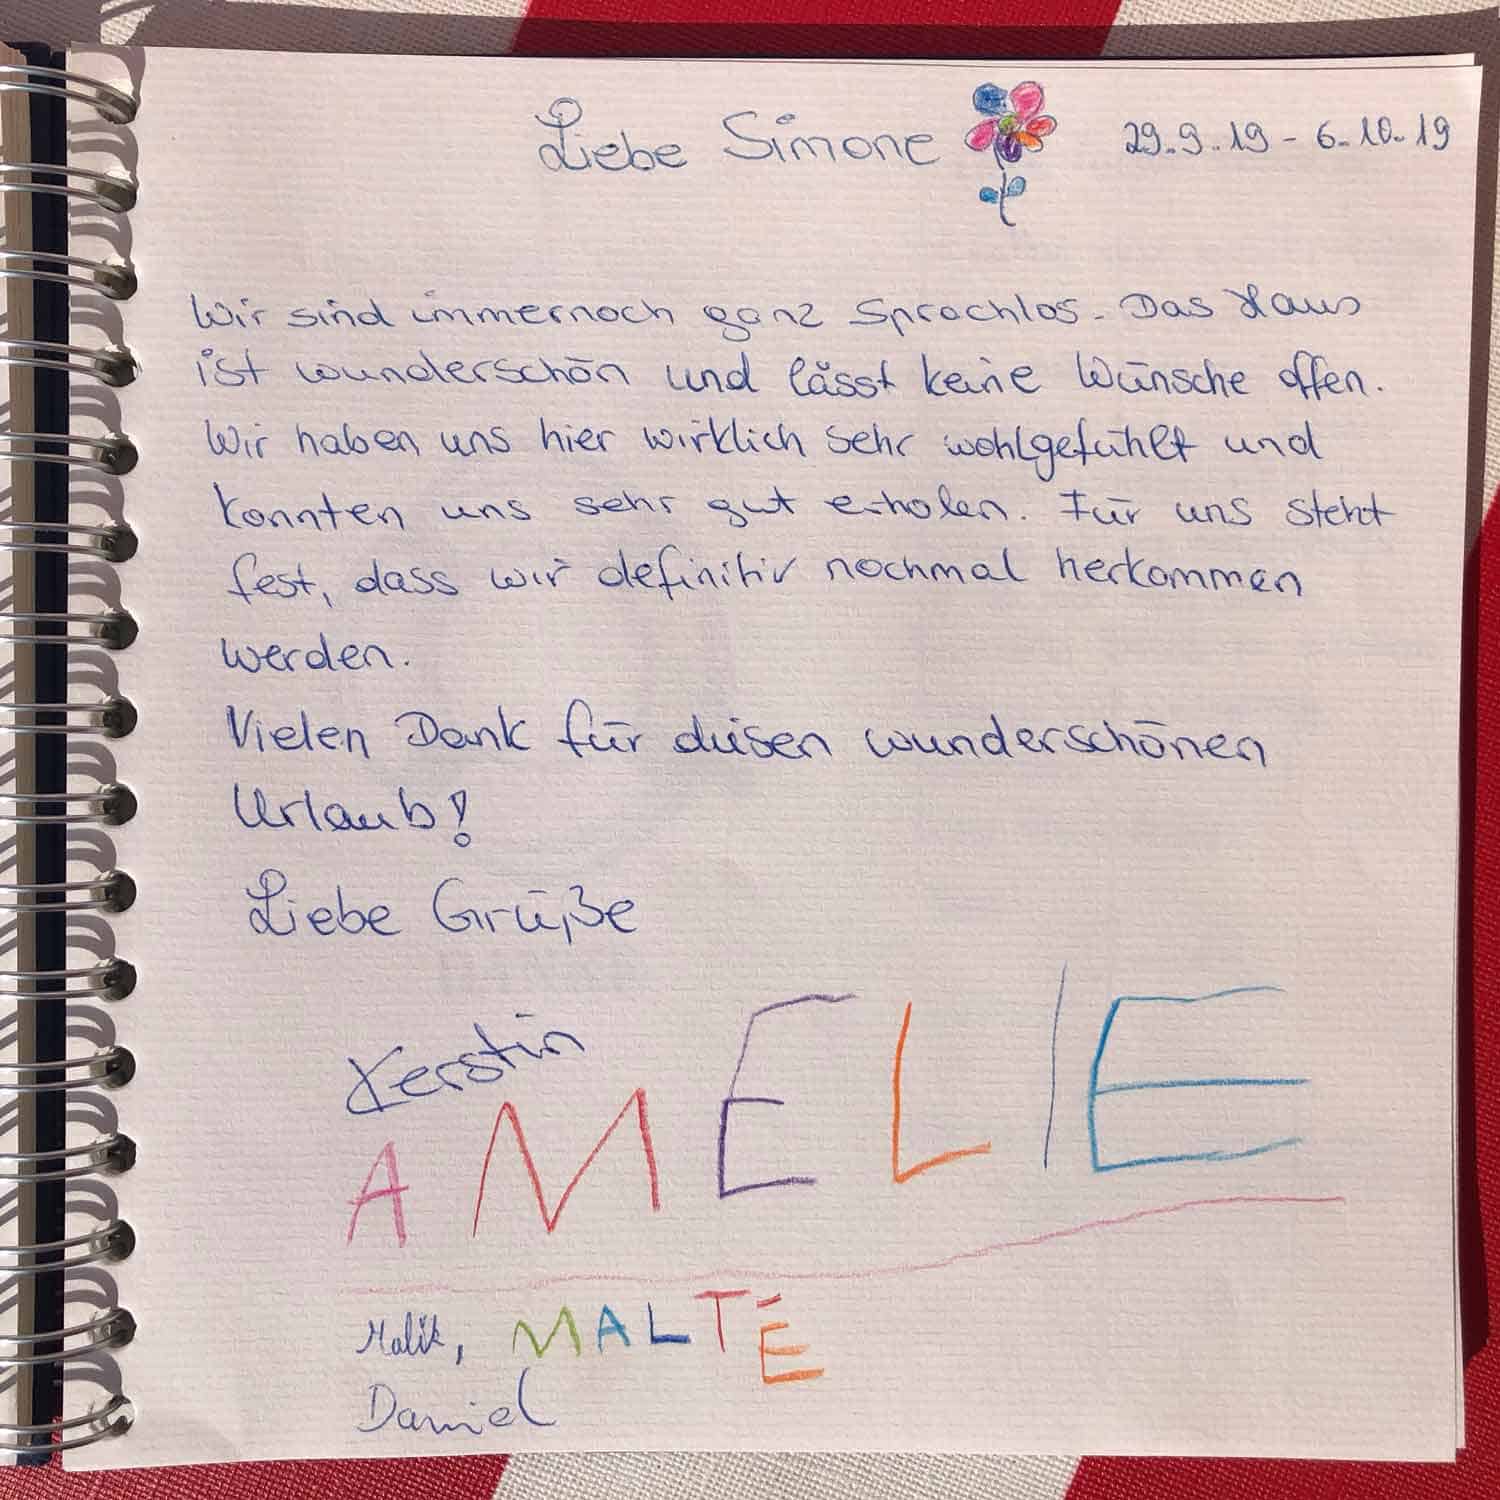 Liebe Simone 29.9.19 - 6.10.19
Wir sind immernoch ganz sprachlos. Das Haus
ist wunderschön und lässt keine Wünsche offen.
Wir haben uns hier wirklich sehr wohlgefühlt und
konnten uns sehr gut erholen. Für uns steht
fest, dass wir definitiv nochmal herkommen
werden.
Vielen Dank für diesen wunderschönen
Urlaub!
Liebe Grüße
Kerstin
AMELIE
Malik, MALTE
Daniel